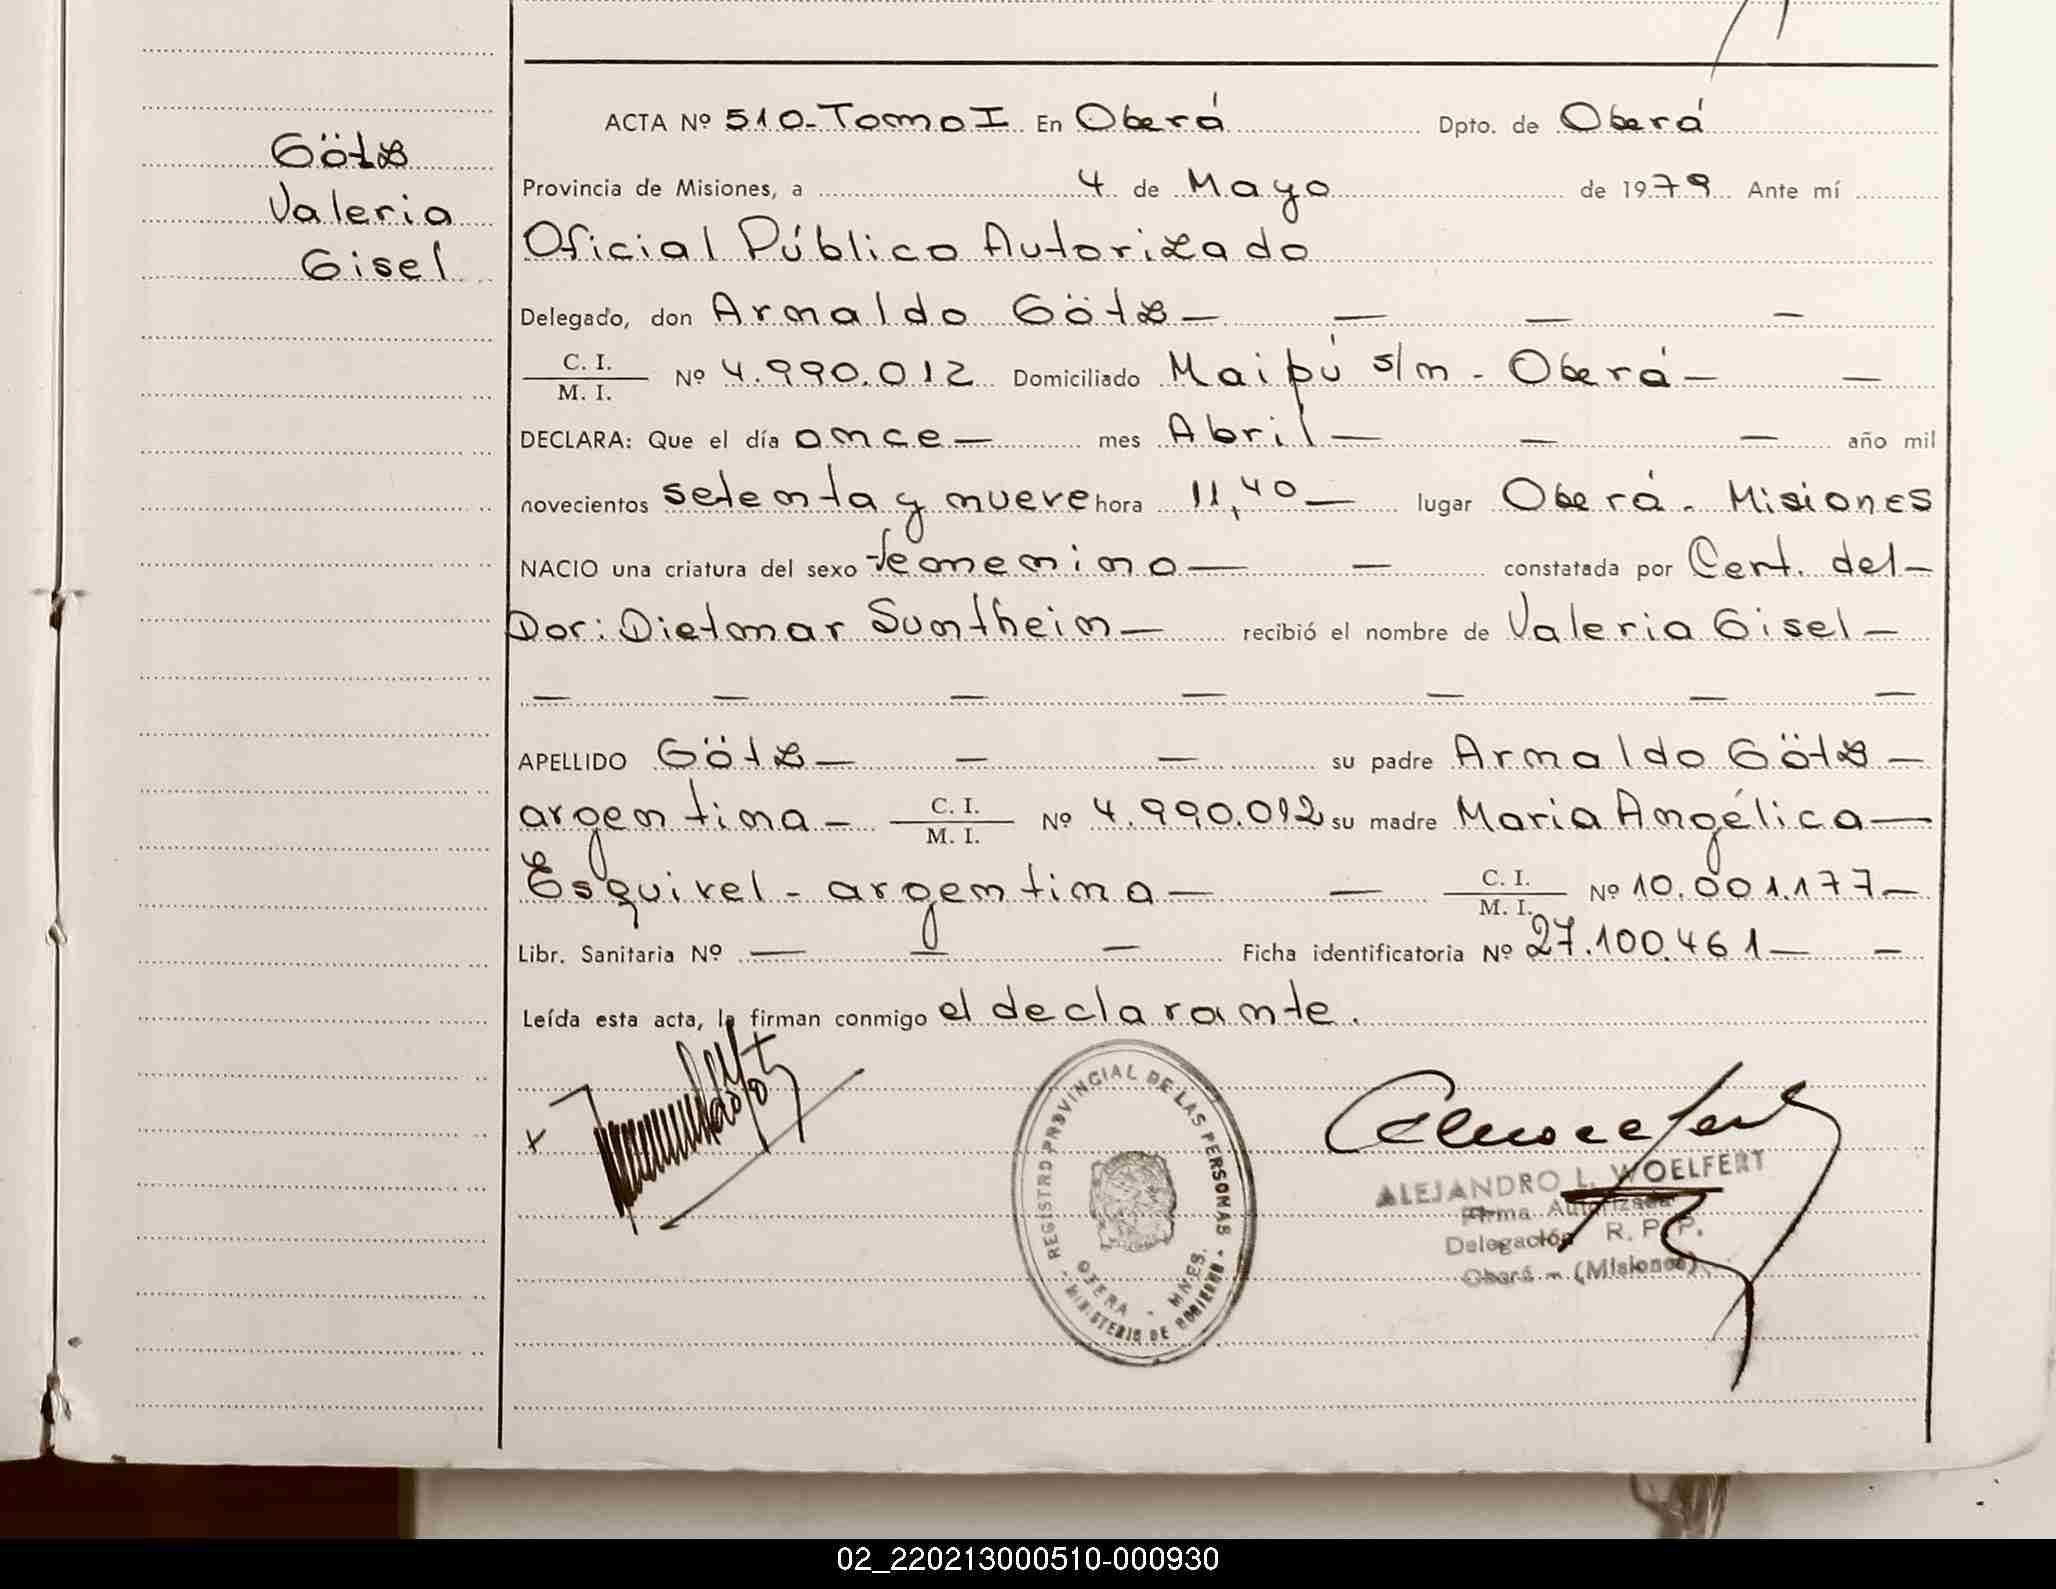 Götz
Valeria
Gisel
ACTA Nº 510-Tomo I En Oberá Dpto. de Oberá
Provincia de Misiones, a 4 de Mayo de 1979 Ante mí
Oficial Público Autorizado
Delegado, don Arnaldo Götz — — — —
C. I. / M. I. Nº 4.990.012 Domiciliado Maipú s/n - Oberá — —
DECLARA: Que el día once — mes Abril — — — año mil
novecientos setenta y nueve hora 11,40 — lugar Oberá. Misiones
NACIO una criatura del sexo femenino — — constatada por Cert. del —
Dor: Dietmar Suntheim — recibió el nombre de Valeria Gisel —
— — — — — — —
APELLIDO Götz — — — su padre Arnaldo Götz —
argentina — C. I. / M. I. Nº 4.990.012 su madre Maria Angélica —
Esquivel - argentina — — C. I. / M. I. Nº 10.001.177 —
Libr. Sanitaria Nº — — — Ficha identificatoria Nº 27.100.461 — —
Leída esta acta, la firman conmigo el declarante.
REGISTRO PROVINCIAL DE LAS PERSONAS
OBERA - MNES.
MINISTERIO DE GOBIERNO
ALEJANDRO L. WOELFERT
Firma Autorizada
Delegación R. P. P.
Oberá - (Misiones)
02_220213000510-000930